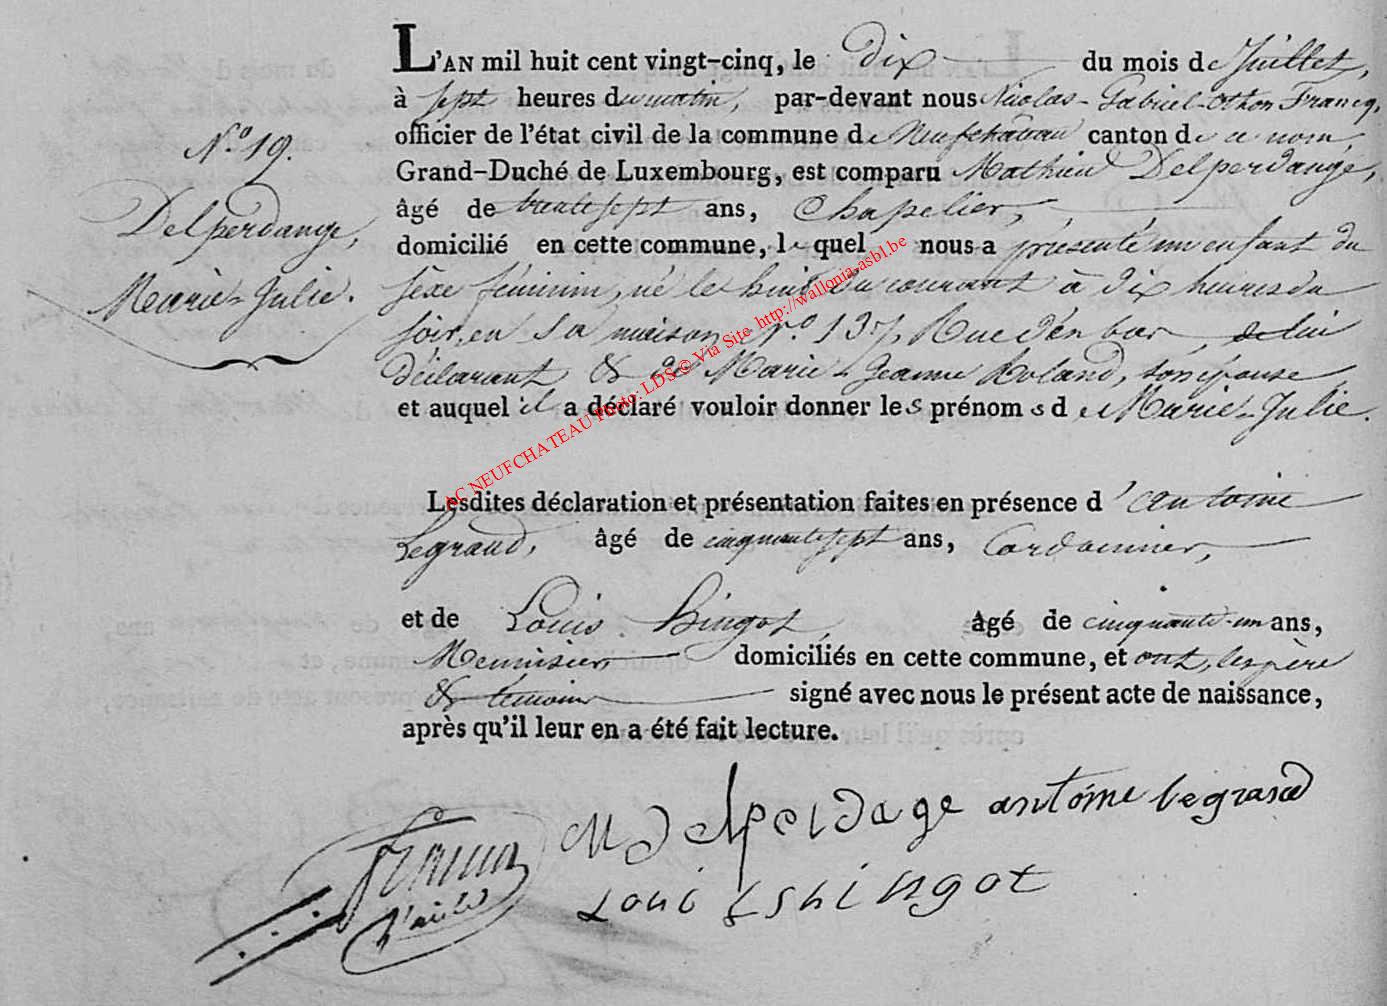 L'AN mil huit cent vingt-cinq, le Dix du mois de Juillet,
à sept heures du matin, par-devant nous Nicolas-Gabriel-Othon Francq,
officier de l'état civil de la commune de Neufchâteau canton de ce nom,
Grand-Duché de Luxembourg, est comparu Mathieu Delperdange,
âgé de trente sept ans, Chapelier,
domicilié en cette commune, le quel nous a présenté un enfant du
sexe féminin, né le huit du courant à dix heures du
soir, en sa maison, N.o 137, Rue d'en bas, de lui
déclarant & de Marie-Jeanne Roland, son épouse
et auquel il a déclaré vouloir donner les prénoms de Marie-Julie.
N.o 19.
Delperdange,
Marie-Julie.
AC NEUFCHATEAU Photo: LDS © Via Site http://wallonia-asbl.be
Lesdites déclaration et présentation faites en présence d'antoine
Legrand, âgé de cinquante sept ans, Cordonnier,
et de Louis Hingot, âgé de cinquante-un ans,
Menuisier, domiciliés en cette commune, et ont, les père
& témoins signé avec nous le présent acte de naissance,
après qu'il leur en a été fait lecture.
M delperdage antoine legrand
Francq